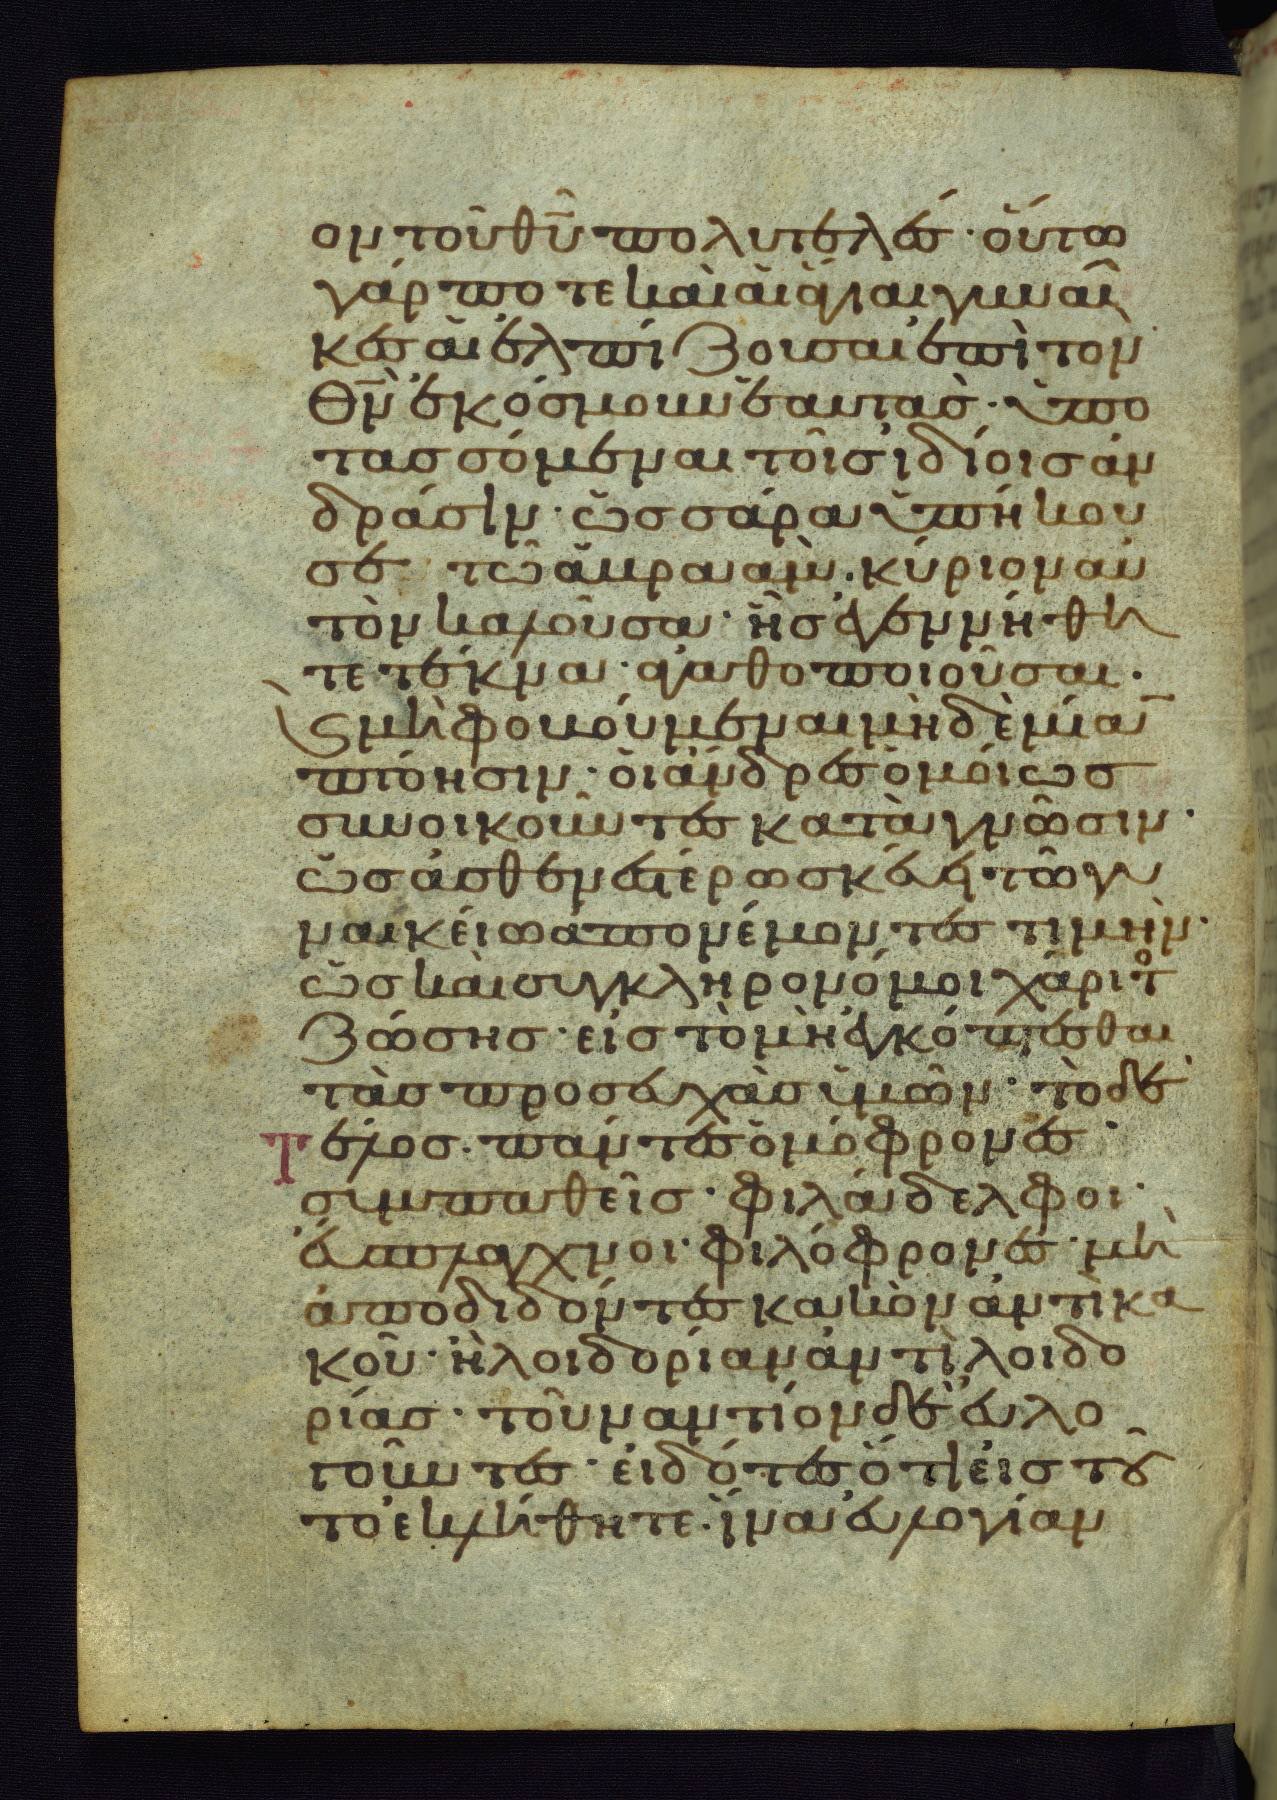 ον τοῦ θ̅υ̅ πολυτελές· οὕτω
γάρ ποτε καὶ αἱ ἅγιαι γυναῖ
κες αἱ ἐλπίζουσαι ἐπὶ τὸν
θ̅ν̅ ἐκόσμουν ἑαυτάς· ὑπο
τασσόμεναι τοῖς ἰδίοις ἀν
δράσιν· ὡς σάρα ὑπήκου
σε τῶ ἀβραάμ. κύριον αὐ
τὸν καλοῦσα· ἧς ἐγεννήθη
τε τέκνα· ἀγαθοποιοῦσαι·
ϛ μὴ φοβούμεναι μὴδὲμίαν
πτόησιν· οἱ ἄνδρες ὁμοίως
συνοικοῦντες κατὰ γνῶσιν·
ὡς ἀσθενεστέρω σκεύει τῶ γυ
ναικείω ἀπονέμοντες τιμήν·
ὡς καὶ συγκληρονόμοι χάριτο
ζώσης· εἰς τὸ μὴ ἐγκόπτεσθαι
τὰς προσευχὰς ὑμῶν· τὸ δὲ
τέλος. πάντες ὁμόφρονες·
συμπαθεῖς· φιλάδελφοι·
εὔσπλαγχνοι· φιλόφρονες· μὴ
ἀποδιδόντες κακὸν ἀντὶ κα
κοῦ· ἢ λοιδορίαν ἀντὶ λοιδο
ρίας· τοὐναντίον δὲ εὐλο
γοῦντες· εἰδότες ὅτι εἰς τοῦ
το ἐκλήθητε. ἵνα εὐλογίαν